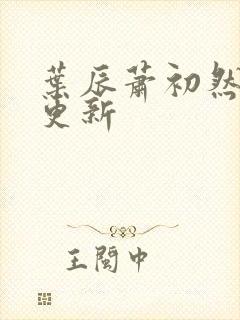 葉辰蕭初然
更新
王閩中